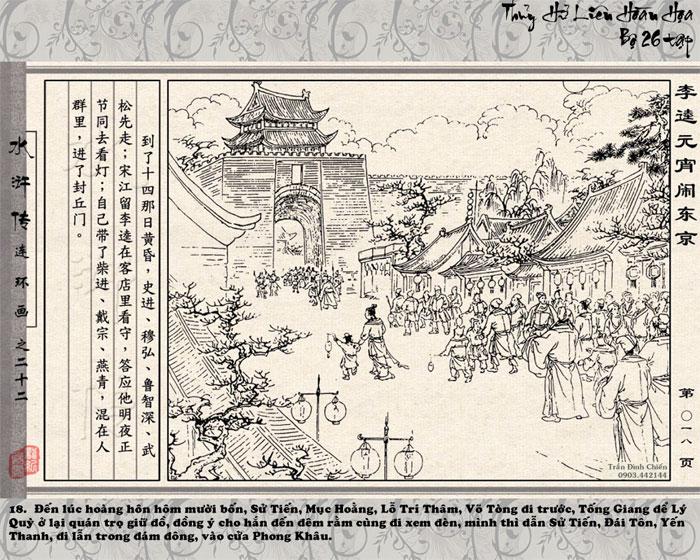 Thủy Hử Liên Hoàn Họa
Bộ 26 tập
李逵元宵闹东京
到了十四那日黄昏，史进、穆弘、鲁智深、武
松先走；宋江留李逵在客店里看守，答应他明夜正
节同去看灯；自己带了柴进、戴宗、燕青，混在人
群里，进了封丘门。
水浒传连环画之二十二
第〇一八页
Trần Đình Chiến
0903.442144
18. Đến lúc hoàng hôn hôm mười bốn, Sử Tiến, Mục Hoằng, Lỗ Trí Thâm, Võ Tòng đi trước, Tống Giang để Lý
Quỳ ở lại quán trọ giữ đồ, đồng ý cho hắn đến đêm rằm cùng đi xem đèn, mình thì dẫn Sử Tiến, Đái Tôn, Yến
Thanh, đi lẫn trong đám đông, vào cửa Phong Khâu.